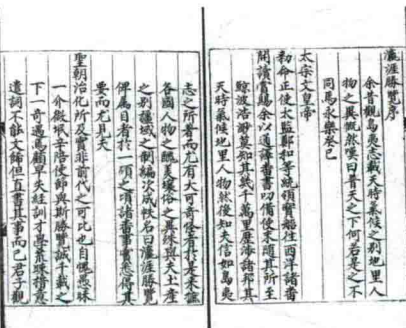 瀛涯勝覽序
余昔觀島夷志載天時氣候之別地里人
物之異慨然嘆曰普天之下何若是之不
同焉永樂癸巳
太宗文皇帝
勅命正使太監鄭和等統領寶船往西洋諸番
開讀賞賜余以通譯番書叨備使末隨其所至
鯨波浩渺莫知其幾千萬里歷涉諸邦其
天時氣候地里人物然後知夫信如島夷
志之所著而尤有大可奇怪者焉於是采摭
各國人物之醜美壤俗之異殊與夫土產
之別疆域之制編次成帙名曰瀛涯勝覽
俾屬目者於一顧之頃諸番事實悉得其
要而尤見夫
聖朝治化所及實非前代之可比也自愧愚昧
一介微氓辛陪使節與斯勝覽誠千載之
下一奇遇焉顧早失經訓才學荒疎措意
遣詞不能文飾但直書其事而已君子觀